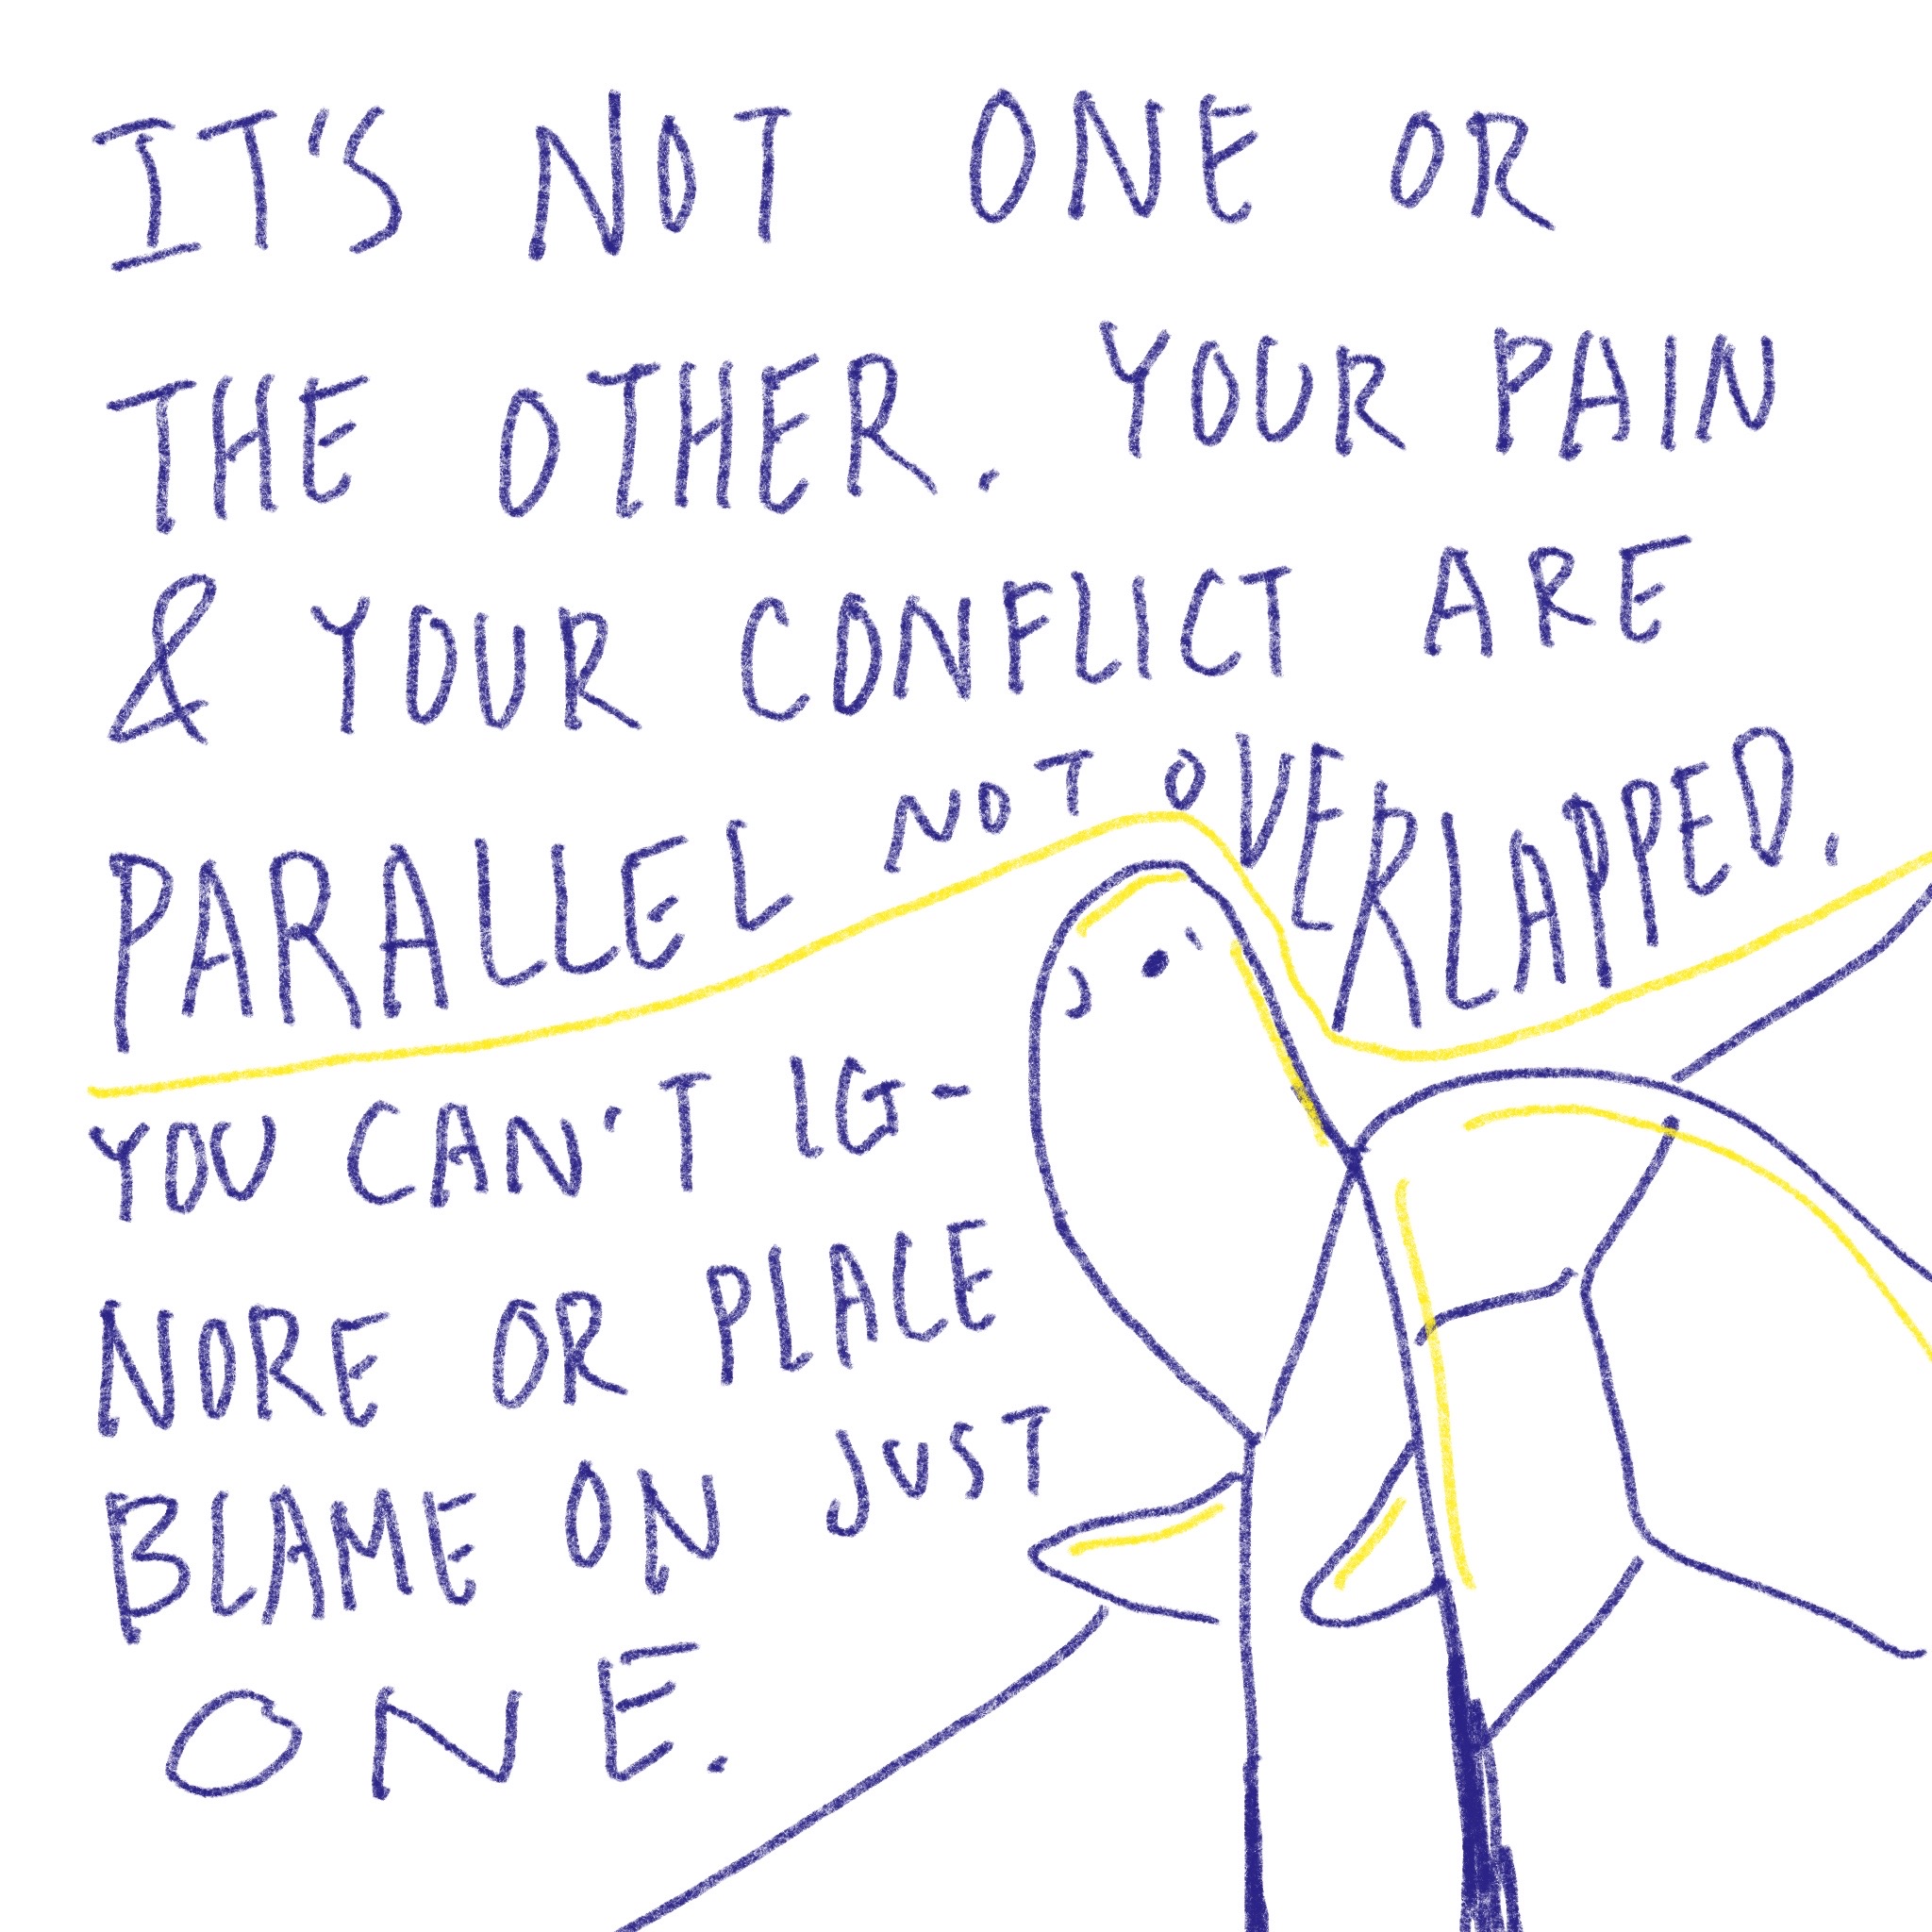 IT'S NOT ONE OR
THE OTHER. YOUR PAIN
& YOUR CONFLICT ARE
PARALLEL NOT OVERLAPPED.
YOU CAN'T IG-
NORE OR PLACE
BLAME ON JUST
ONE.